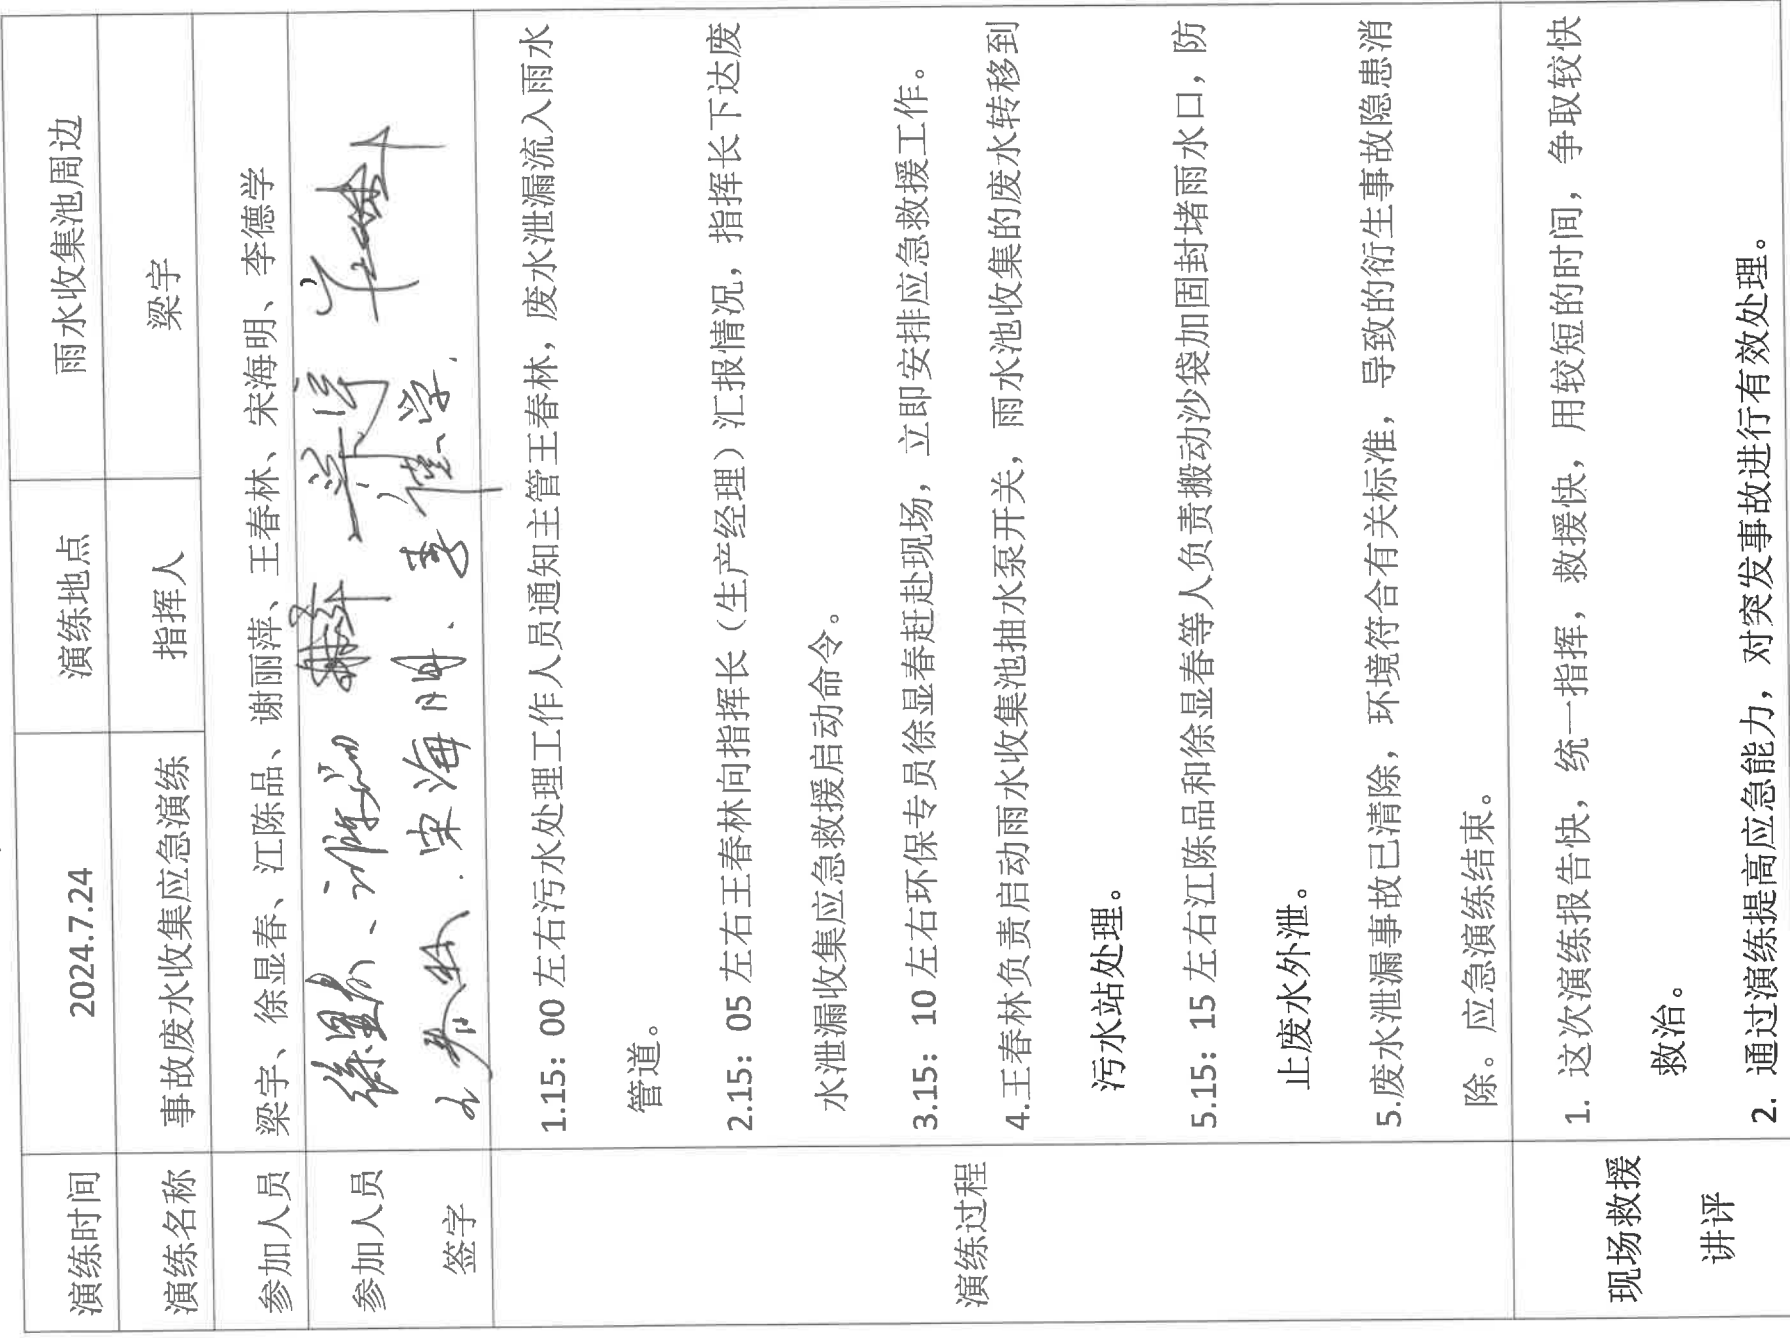 演练时间 2024.7.24 演练地点 雨水收集池周边
演练名称 事故废水收集应急演练 指挥人 梁宇
参加人员 梁宇、徐显春、江陈品、谢丽萍、王春林、宋海明、李德学
参加人员
签字
徐显春、江陈品
王春林、宋海明、李德学.
演练过程
1.15：00 左右污水处理工作人员通知主管王春林，废水泄漏流入雨水
管道。
2.15：05 左右王春林向指挥长（生产经理）汇报情况，指挥长下达废
水泄漏收集应急救援启动命令。
3.15：10 左右环保专员徐显春赶赴现场，立即安排应急救援工作。
4.王春林负责启动雨水收集池抽水泵开关，雨水池收集的废水转移到
污水站处理。
5.15：15 左右江陈品和徐显春等人负责搬动沙袋加固封堵雨水口，防
止废水外泄。
5.废水泄漏事故已清除，环境符合有关标准，导致的衍生事故隐患消
除。应急演练结束。
现场救援
讲评
1. 这次演练报告快，统一指挥，救援快，用较短的时间，争取较快
救治。
2. 通过演练提高应急能力，对突发事故进行有效处理。